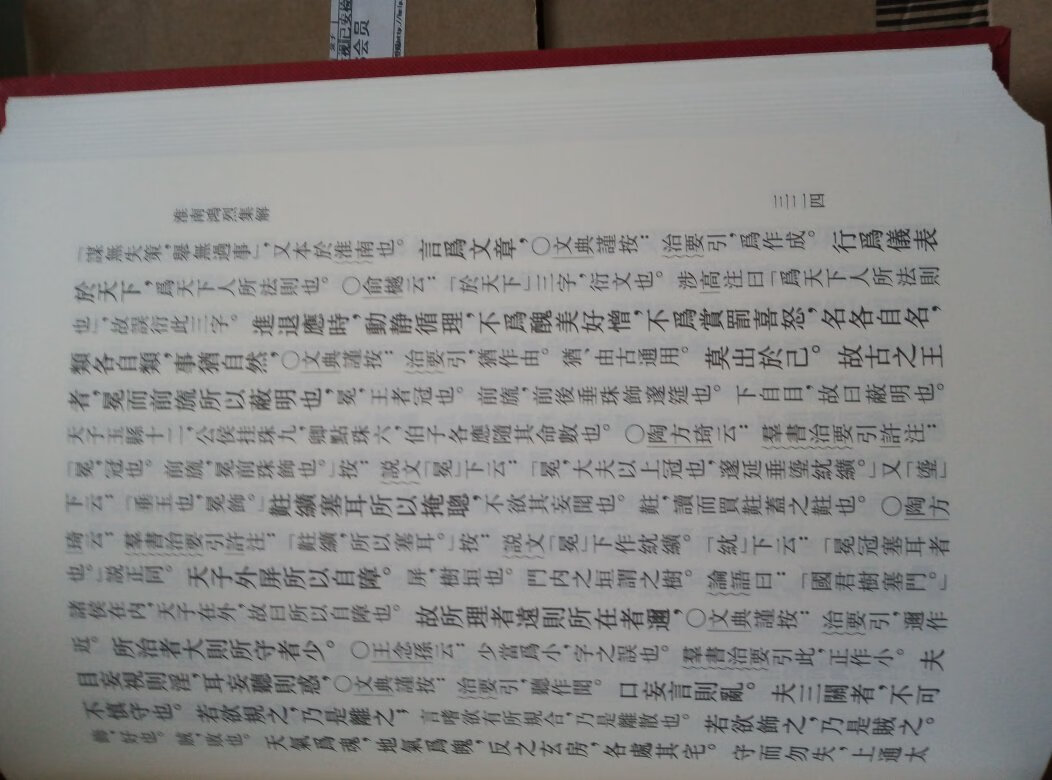 视已安检
会员
http://help
淮南鴻烈集解
三二四
「謀無失策,舉無過事」,又本於淮南也。言爲文章,〇文典謹按:治要引,爲作成。行爲儀表
於天下,爲天下人所法則也。〇俞樾云:「於天下」三字,衍文也。涉高注曰「爲天下人所法則
也」,故誤衍此三字。進退應時,動静循理,不爲醜美好憎,不爲賞罰喜怒,名各自名,
類各自類,事猶自然,〇文典謹按:治要引,猶作由。猶,由古通用。莫出於己。故古之王
者,冕而前旒所以蔽明也,冕,王者冠也。前旒,前後垂珠飾邃筵也。下自目,故曰蔽明也。
天子玉縣十二,公侯挂珠九,卿點珠六,伯子各應隨其命數也。〇陶方琦云:羣書治要引許注:
「冕,冠也。前旒,冕前珠飾也。」按:説文「冕」下云:「冕,大夫以上冠也,邃延垂瑬紞纊。」又「瑬」
下云:「垂玉也,冕飾。」黈纊塞耳所以掩聰,不欲其妄聞也。黈,讀而買黈蓋之黈也。〇陶方
琦云:羣書治要引許注:「黈纊,所以塞耳。」按:説文「冕」下作紞纊。「紞」下云:「冕冠塞耳者
也。」説正同。天子外屏所以自障。屏,樹垣也。門内之垣謂之樹。論語曰:「國君樹塞門。」
諸侯在内,天子在外,故曰所以自障也。故所理者遠則所在者邇,〇文典謹按:治要引,邇作
近。所治者大則所守者少。〇王念孫云:少當爲小,字之誤也。羣書治要引此,正作小。夫
目妄視則淫,耳妄聽則惑,〇文典謹按:治要引,聽作聞。口妄言則亂。夫三關者,不可
不慎守也。若欲規之,乃是離之;言嗜欲有所規合,乃是離散也。若欲飾之,乃是賊之。
飾,好也。賊,敗也。天氣爲魂,地氣爲魄,反之玄房,各處其宅。守而勿失,上通太